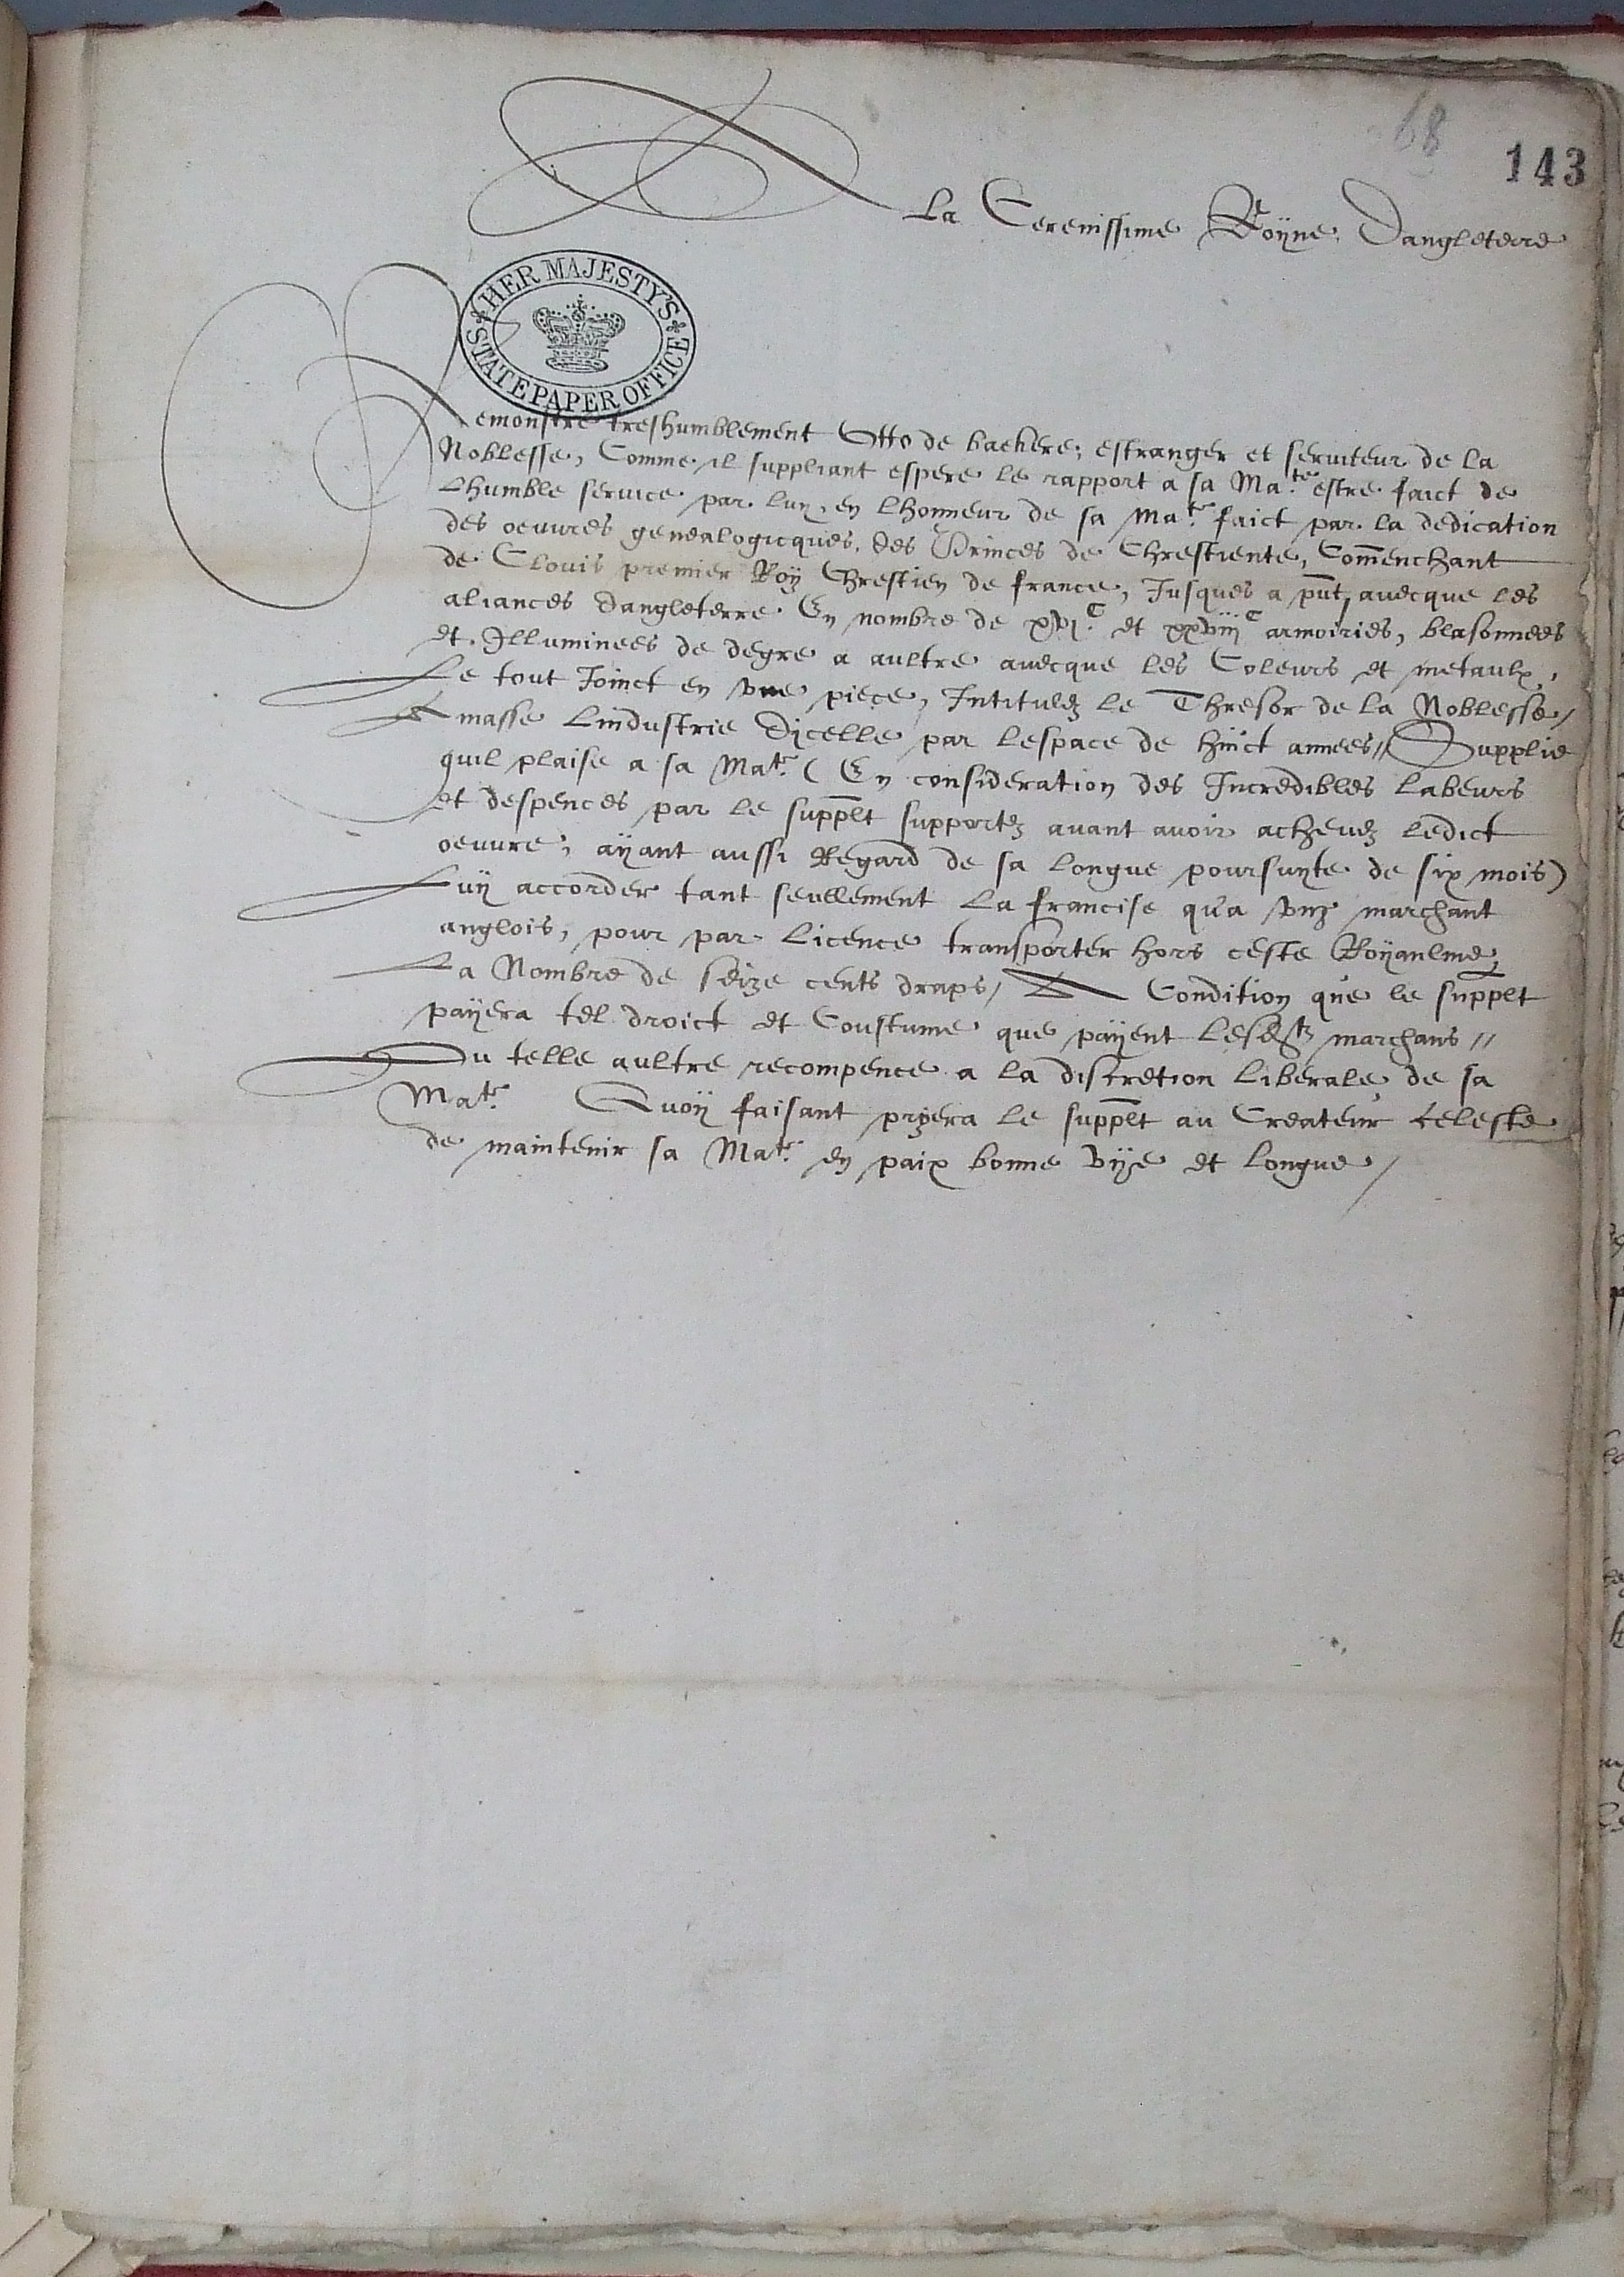 68
143
A La Serenissime Royne Dangleterre
HER MAJESTY'S
STATE PAPER OFFICE
Remonstre treshumblement Otto de backere, estranger et seruiteur de la
Noblesse, Comme il suppliant espere le rapport a sa Ma.te estre faict de
Lhumble seruice par luy, en Lhonneur de sa Mate. faict par la dedication
des oeuures genealogicques, des Princes de Chrestiente, Com̄enchant
de Clouis premier Roÿ Chrestien de france, Jusques a pn̄t, auecque les
aliances dangleterre En nombre de xvi.C et xxviii C armoiries, blasonnees
et Illuminees de degre a aultre auecque les Coleurs et metaulx,
Le tout Joinct en vne piece, Intitulez le Thresor de la Noblesse/
Amasse Lindustrie dicelle par lespace de huict annees// Supplie
quil plaise a sa Mate. (En consideration des Incredibles labeurs
et despences par le supp̄lt supportez auant auoir acheuez ledict
oeuure, aÿant aussi Regard de sa longue poursuyte de six mois)
Luÿ accorder tant seullement La francise qu'a vng marchant
anglois, pour par Licence transporter hors ceste Royaulme,
La Nombre de seize cents draps/ A Condition que le supp̄lt
paÿera tel droict et Coustume que paÿent lesdts marchans //
Ou telle aultre recompence a la discretion Liberale de sa
Mate. Quoÿ faisant priera le supp̄lt au Createur celeste
de maintenir sa Mate. en paix bonne vije et longue /